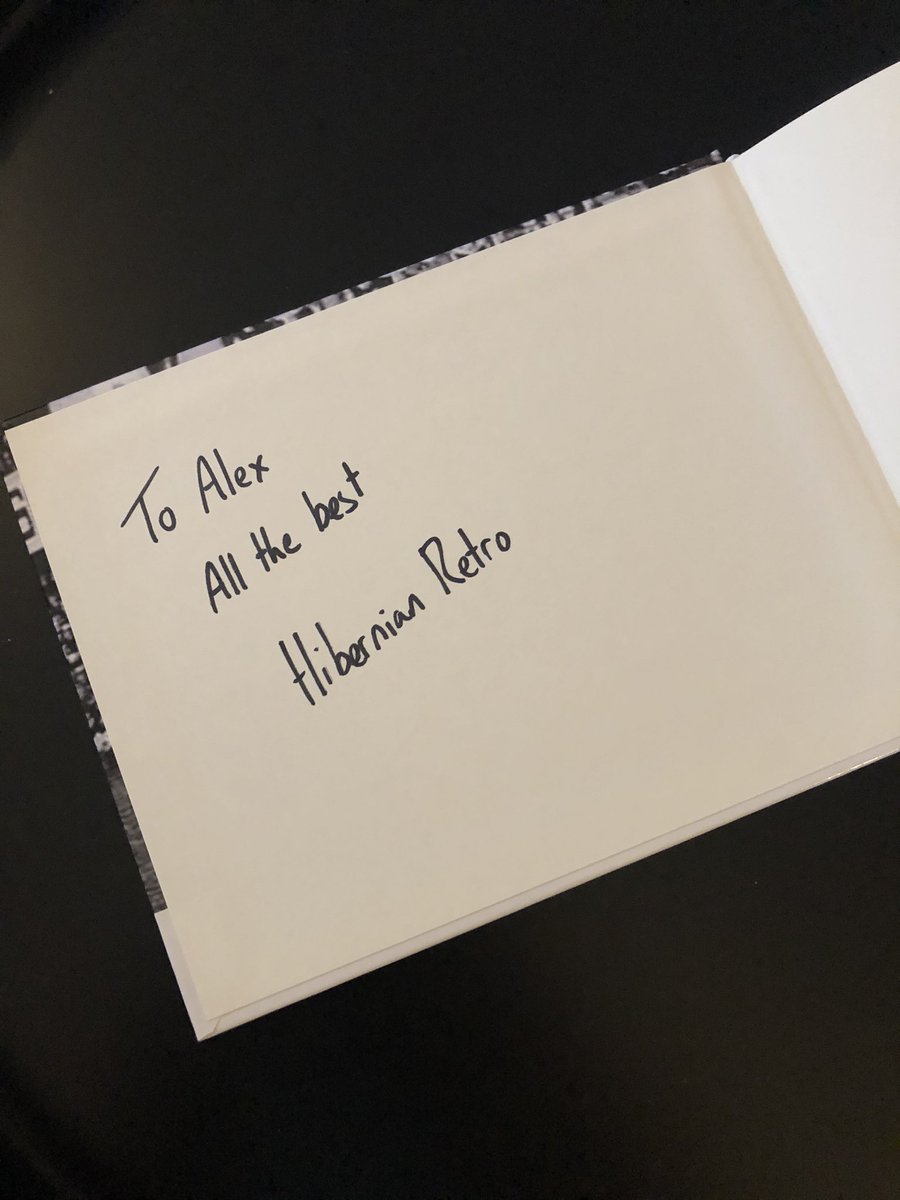 To Alex
All the best
Hibernian Retro